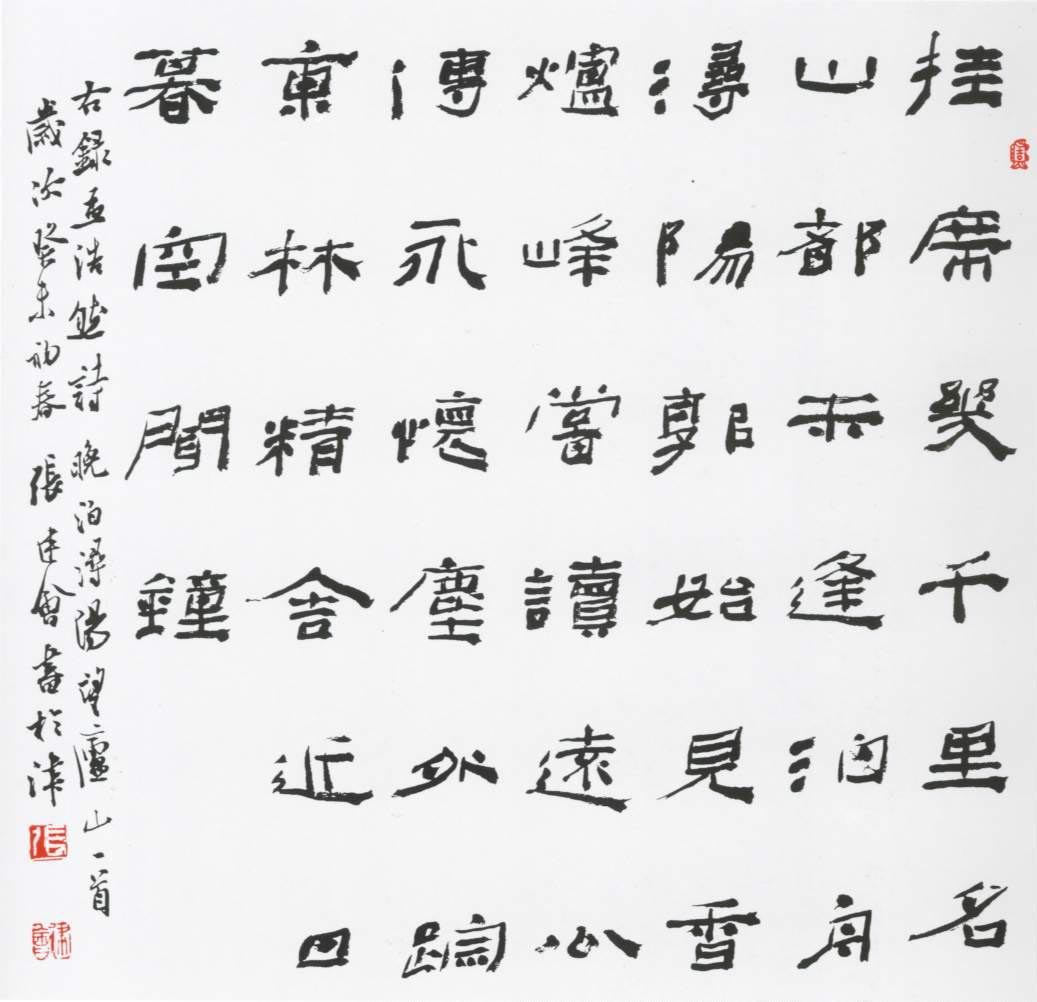 挂席幾千里名
山都未逢泊舟
潯陽郭始見香
爐峰嘗讀遠公
傳永懷塵外蹤
東林精舍近日
暮空聞鐘
右錄孟浩然詩 晚泊潯陽望廬山一首
歲次癸未初春 張建會書於津
張
建會